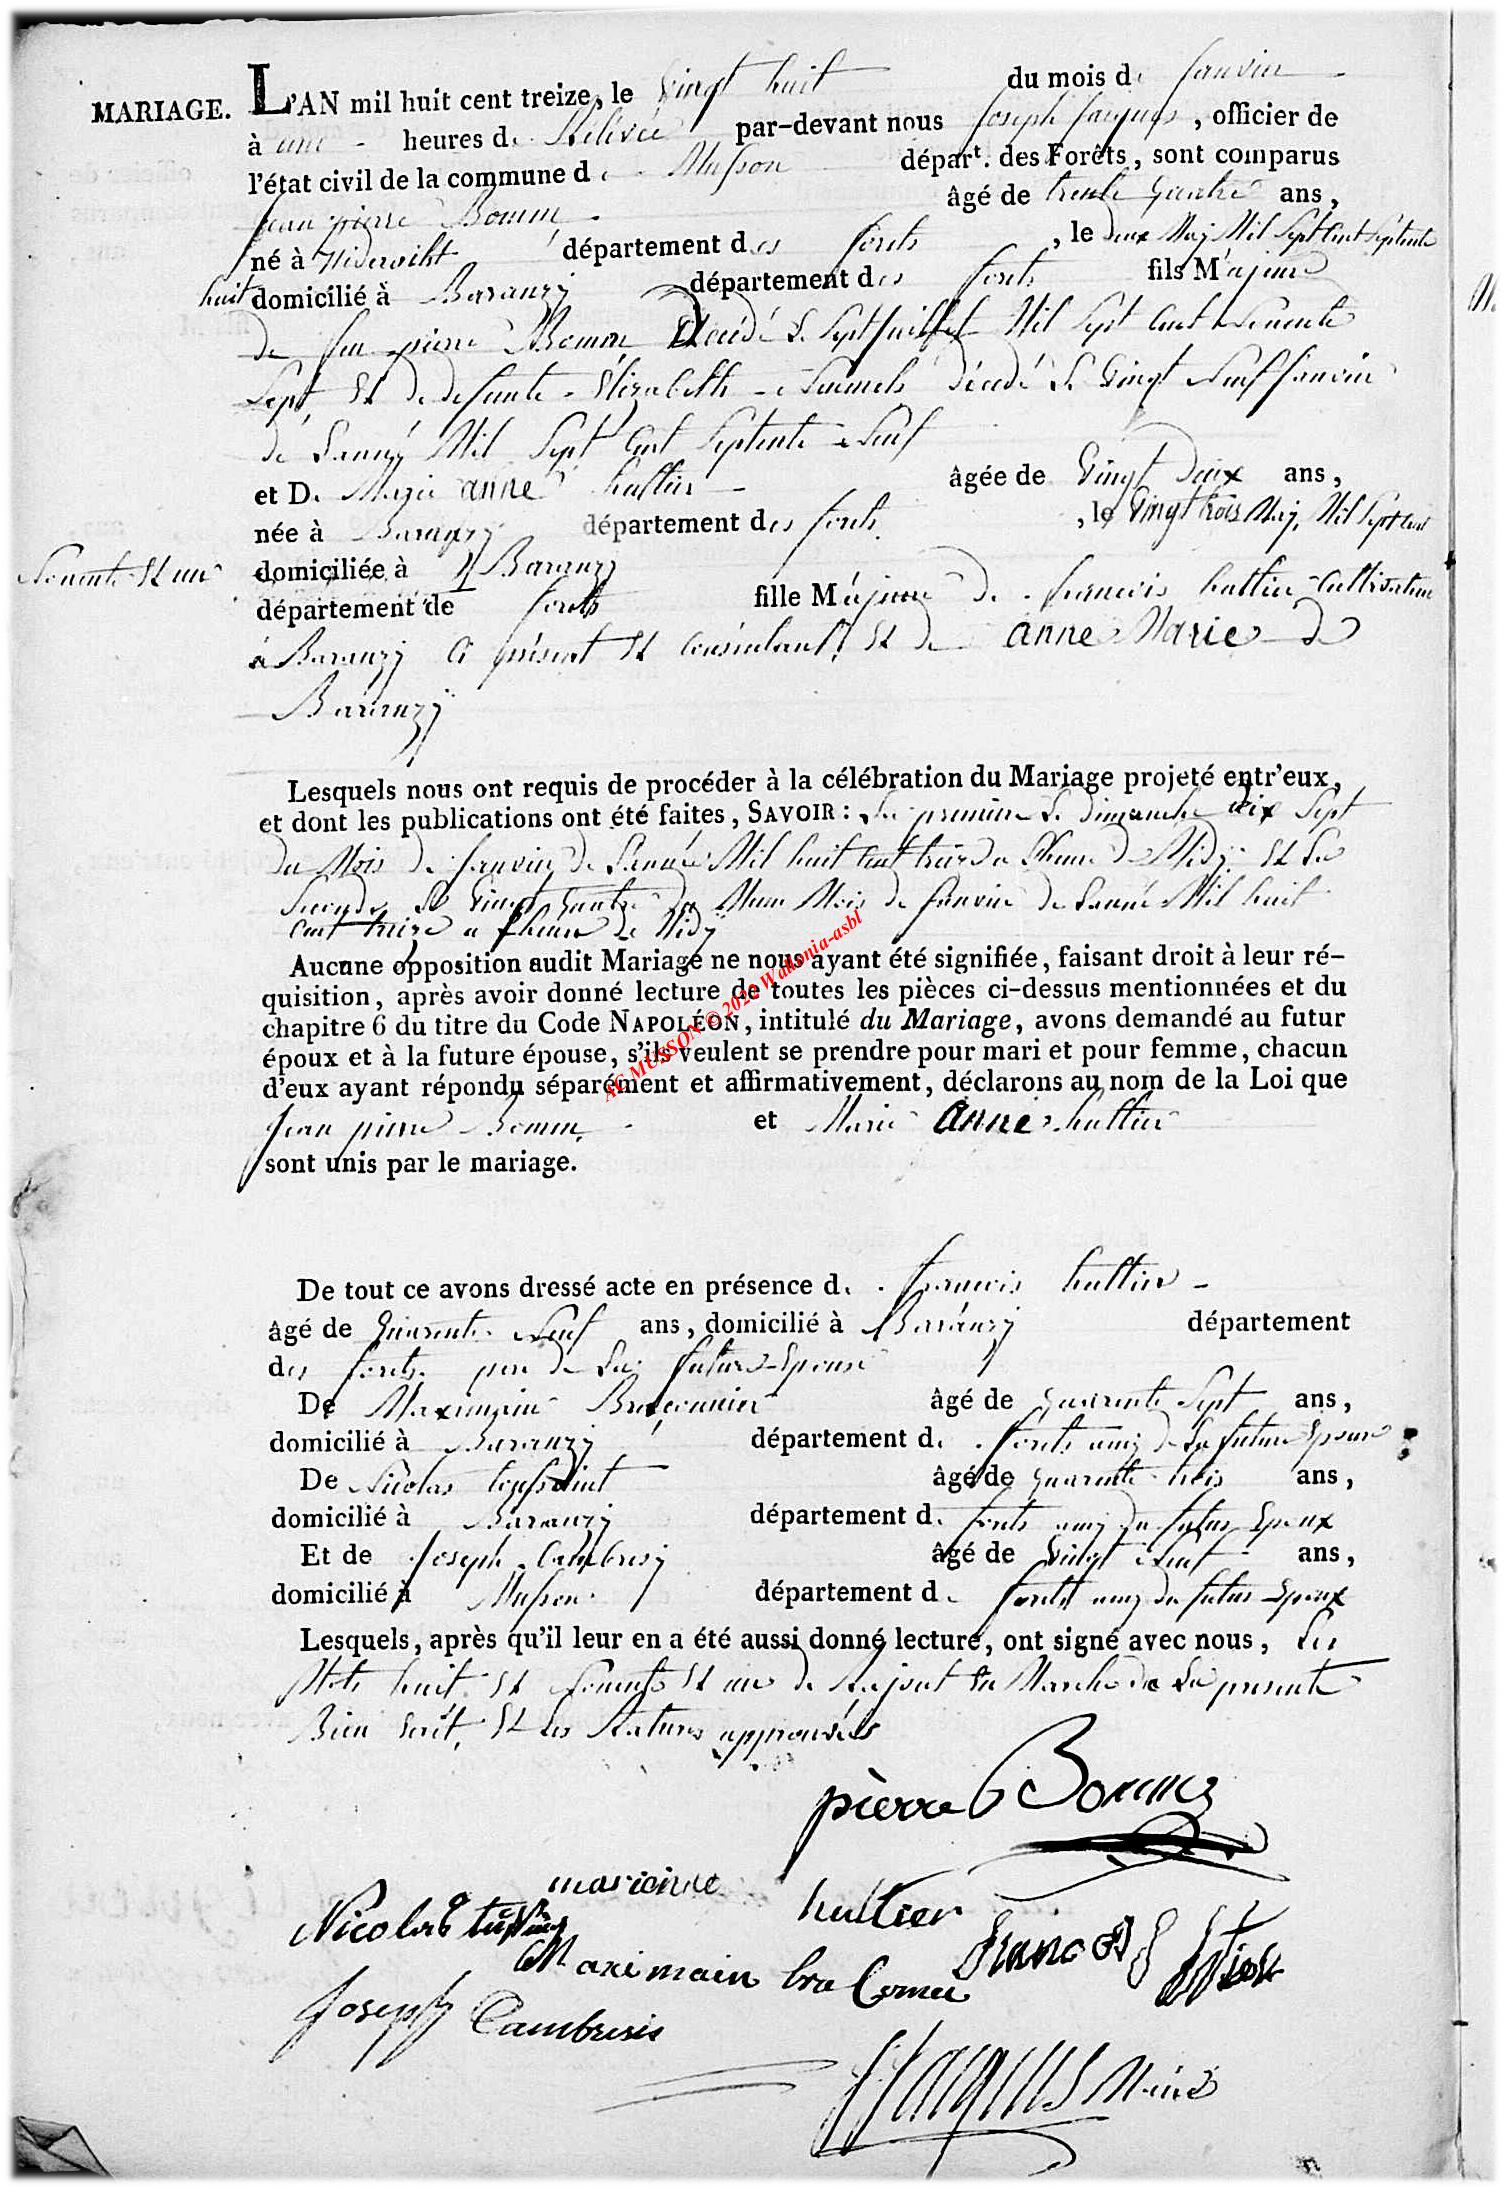 MARIAGE. L'AN mil huit cent treize, le Vingt huit du mois de Janvier
à une heures de Relévée par-devant nous Joseph Jacques, officier de
l'état civil de la commune de Musson départ. des Forêts, sont comparus
Jean pierre Bomm, âgé de trente quatre ans,
né à département des forets, le deux Maÿ Mil Sept Cent Septente
huit domicilié à Baranzÿ département des forets fils Majeur
de feu pierre Bomm, décédé Le Sept Juillet Mil Sept Cent
Sept, Et de défunte Elizabeth décédé Le Vingt neuf Janvier
de Lannéÿ Mil Sept Cent Septente neuf
et De Marie anne huttier âgée de Vingt Deux ans,
née à Baranzÿ département des forets, le Vingt trois Maÿ, Mil Sept Cent
Nonente Et un domiciliée à Baranzÿ
département de forets fille Majeure de francois huttier Cultivateur
à Baranzÿ Ci présent Et Consentant, Et de anne Marie de
Baranzÿ
Lesquels nous ont requis de procéder à la célébration du Mariage projeté entr'eux,
et dont les publications ont été faites, SAVOIR : La premiere Le dimanche dix Sept
du Mois de Janvier de Lannée Mil huit Cent treize a Lheure de Midÿ Et La
Seconde Le Vingt quatre du Meme Mois de Janvier de Lannée Mil huit
Cent treize a Lheure de Midÿ
Aucune opposition audit Mariage ne nous ayant été signifiée, faisant droit à leur ré-
quisition, après avoir donné lecture de toutes les pièces ci-dessus mentionnées et du
chapitre 6 du titre du Code NAPOLÉON, intitulé du Mariage, avons demandé au futur
époux et à la future épouse, s'ils veulent se prendre pour mari et pour femme, chacun
d'eux ayant répondu séparément et affirmativement, déclarons au nom de la Loi que
Jean pierre Bomm, et Marie Anne huttier
sont unis par le mariage.
AC MUSSON © 2022 Wallonia-asbl
De tout ce avons dressé acte en présence de francois huttier
âgé de Quarente Neuf ans, domicilié à Baranzÿ département
des forets pere de La future Epouse
De Maximain Braconnier âgé de quarente Sept ans,
domicilié à Baranzÿ département de forets amÿ de La future Epouse
De Nicolas toussaint âgé de quarente trois ans,
domicilié à Baranzÿ département de forets amÿ du futur Epoux
Et de Joseph Cambresÿ âgé de Vingt neuf ans,
domicilié à Musson département de forets amÿ du futur Epoux
Lesquels, après qu'il leur en a été aussi donné lecture, ont signé avec nous, Les
Mots huit Et Nonente Et un de Rajout En Marche de La presente
Bien Ecrit, Et Les Ratures approuvées
pièrre Bomm
marienne huttier
Nicolas
Maximain bra Conier
Joseph Cambresis
Jacques Maire